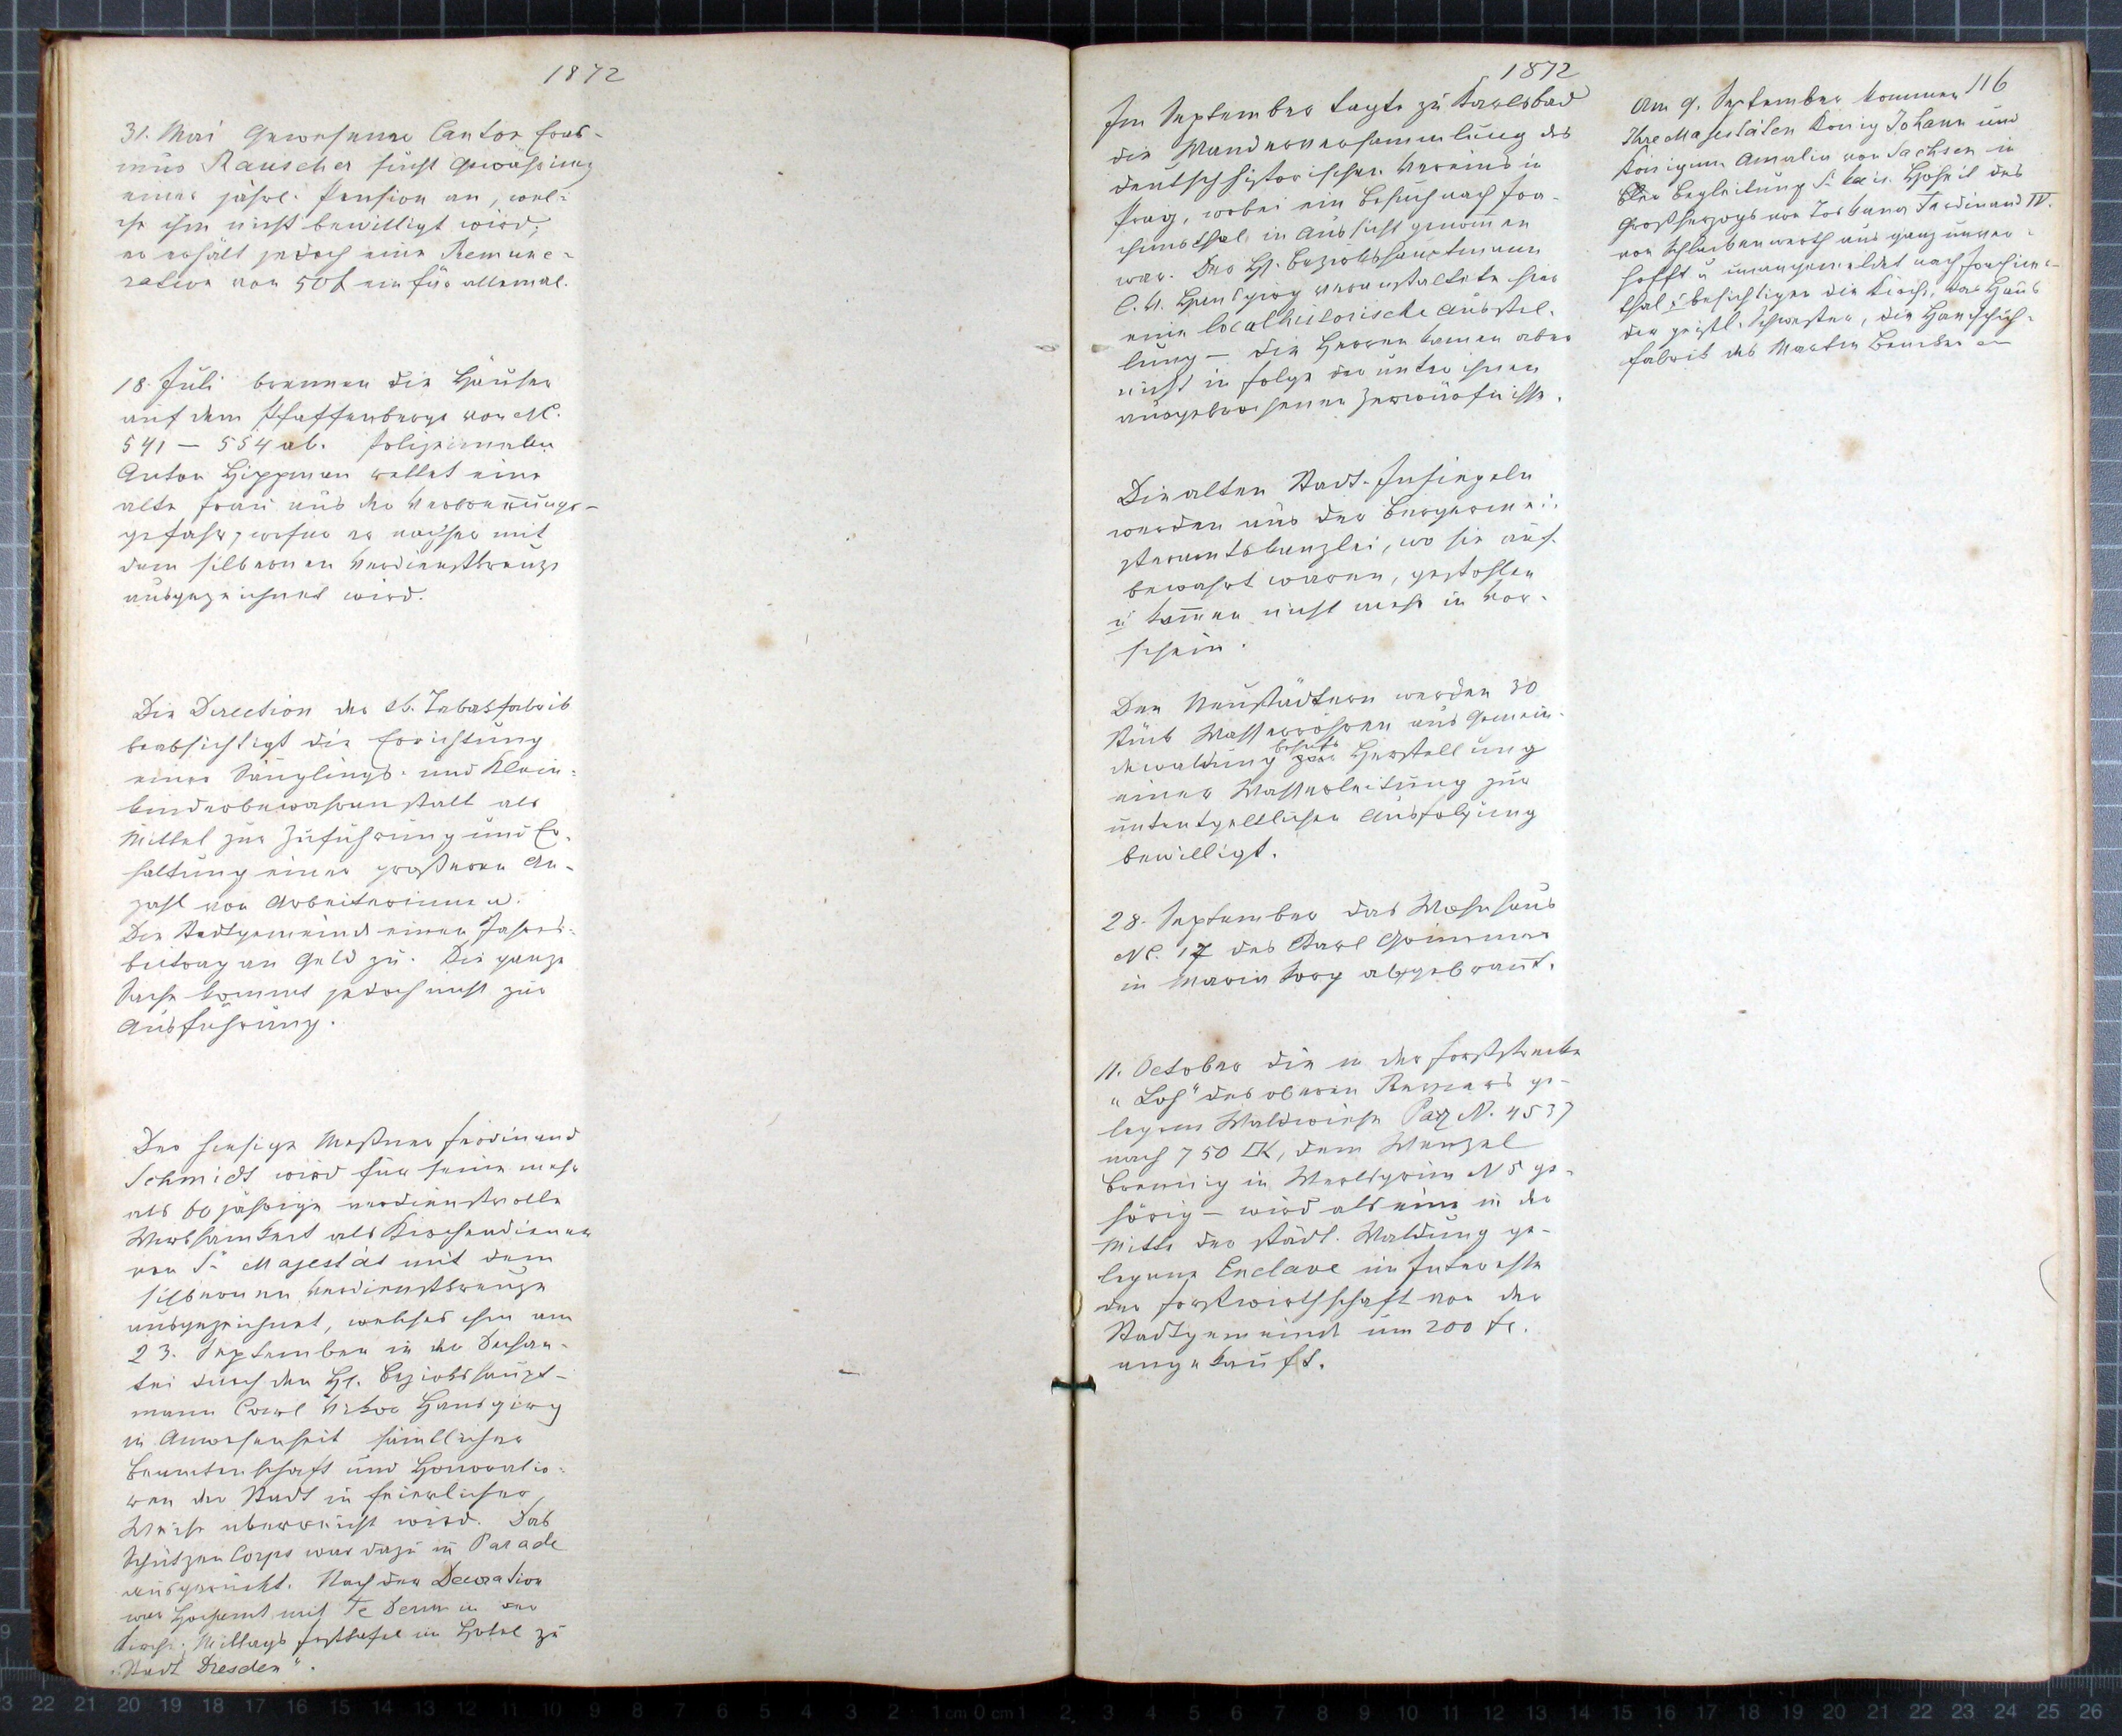 1872
31. Mai Gewesener Cantor Eras-
mus Rauscher sucht Gewährung
einer jährl. Pension an, wel-
che ihm nicht bewilligt wird;
er erhält jedoch eine Remune-
ration von 50f ein für allemal.
18. Juli brennen die Häuser
auf dem Pfaffenberge von NC.
541 – 554 ab. Polizeimann
Anton Hippman rettet eine
alte Frau aus der Verbrennungs-
gefahr, wofür er nachher mit
dem silbernen Verdienstkreuze
ausgezeichnet wird.
Die Direction der kk. Tabakfabrik
beabsichtigt die Errichtung
einer Säuglings- und Klein-
kinderbewahranstalt als
Mittel zur Zuführung und Er-
haltung einer größeren An-
zahl von Arbeiterinnen.
Die Stadtgemeinde einen Jahres-
beitrag an Geld zu. Die ganze
Sache kommt jedoch nicht zur
Ausführung.
Der hiesige Meßner Ferdinand
Schmidt wird für seine mehr
als 60 jährige verdienstvolle
Wirksamkeit als Kirchendiener
von Sr Majestät mit dem
silbernen Verdienstkreuze
ausgezeichnet, welches ihm am
23. September in der Dechan-
tei durch den H. Bezirkshaupt-
mann Carl Victor Hansgirg
in Anwesenheit sämtlicher
Beamtenschaft und Honoratio-
ren der Stadt in feierlicher
Weise überreicht wird. Das
Schützen Corps war dazu in Parade
ausgerückt. Nach der Decoration
war Hochamt mit Te Deum in der
Kirche; Mittags Festtafel im Hotel zu
"Stadt Dresden".
1872
Im September tagte zu Karlsbad
die Wanderversammlung des
deutschhistorischen Vereins in
Prag, wobei ein Besuch nach Joa-
chimsthal in Aussicht genommen
war. Der H. Bezirkshauptmann
C. V. Hansgirg veranstaltete hier
eine localhistorische Ausstel-
lung – die Herren kamen aber
nicht in Folge der unter ihnen
ausgebrochenen Zerwürfnisse.
Die alten Stadt-Insiegeln
werden aus der Bürgermei-
steramtskanzlei, wo sie auf-
bewahrt waren, gestohlen
u kommen nicht mehr in Vor-
schein.
Den Neustädtern werden 30
Stück Wasserröhren aus Gemein-
dewaldung behufs Herstellung
einer Wasserleitung zur
unentgeltlichen Ausfolgung
bewilligt.
28. September das Wohnhaus
NC. 17 des Karl
in Maria Sorg abgebrannt.
11. October die in der Forststrecke
"Loh" des oberen Reviers ge-
legene Waldwiese Parz N. 4537
nach 750 □K, dem Wenzel
in Werlsgrün N 5 ge-
hörig – wird als eine in der
Mitte der städt. Waldung ge-
legene Enclave im Interesse
der Forstwirthschaft von der
Stadtgemeinde um 200 fl.
angekauft.
116
Am 9. September kommen
Ihre Majestäten König Johann und
Königinn Amalia von Sachsen in
Begleitung Sr kais. Hoheit des
Großherzogs von Toskana Ferdinand IV.
von Schlackenwerth aus ganz unver-
hofft u unangemeldet nach Joachims-
thal u besichtigen die Kirche, das Haus
der geistl. Schwestern, die Handschuh-
fabrik des Martin